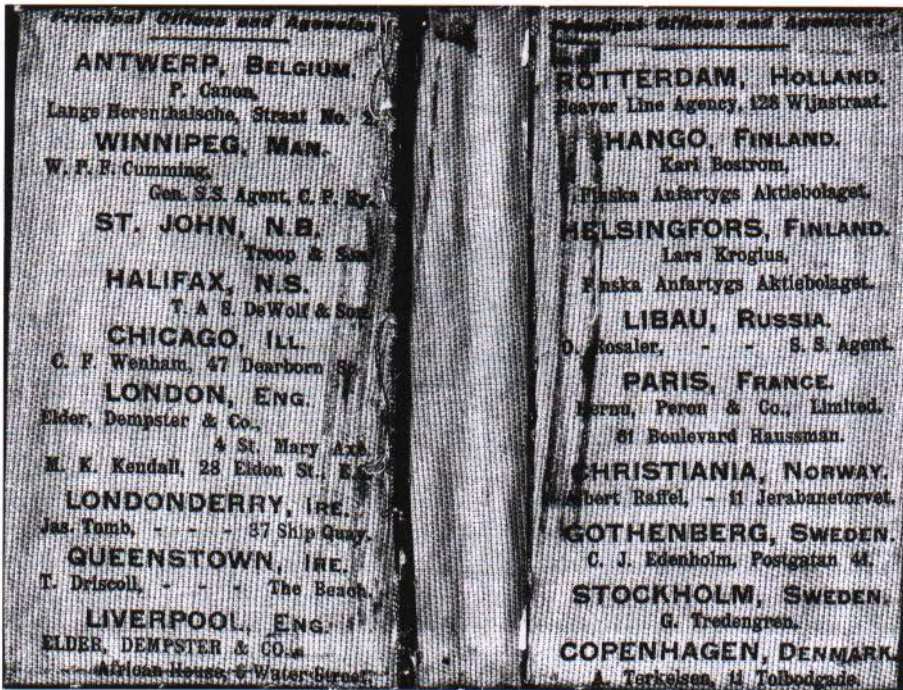 Principal Offices and Agencies
ANTWERP, BELGIUM.
P. Canon,
Lange Herenthalsche, Straat No. 2.
WINNIPEG, MAN.
W. P. F. Cumming,
Gen. S.S. Agent, C. P. Ry.
ST. JOHN, N.B.
Troop & Son
HALIFAX, N.S.
T. A S. DeWolf & Son.
CHICAGO, ILL.
C. F. Wenham, 47 Dearborn St.
LONDON, ENG.
Elder, Dempster & Co.,
4 St. Mary Axe.
M. K. Kendall, 28 Eldon St.,
LONDONDERRY, IRE.
Jas. Tomb, - - - 37 Ship Quay.
QUEENSTOWN, IRE.
T. Driscoll, - - - The Beach.
LIVERPOOL, ENG.
ELDER, DEMPSTER & CO.,
African House, 6 Water Street.
Principal Offices and Agencies
ROTTERDAM, HOLLAND.
Beaver Line Agency, 128 Wijnstraat.
HANGO, FINLAND.
Karl Bostrom,
Finska Anfartygs Aktiebolaget.
HELSINGFORS, FINLAND.
Lars Krogius,
Finska Anfartygs Aktiebolaget.
LIBAU, RUSSIA.
O. Rosaler, - - S. S. Agent.
PARIS, FRANCE.
Hernu, Peron & Co., Limited.
61 Boulevard Haussman.
CHRISTIANIA, NORWAY.
Albert Raffel, - 11 Jerabanetorvet.
GOTHENBERG, SWEDEN.
C. J. Edenholm, Postgatan 44.
STOCKHOLM, SWEDEN.
G. Tredengren.
COPENHAGEN, DENMARK.
A. Terkelsen, 11 Tolbodgade.